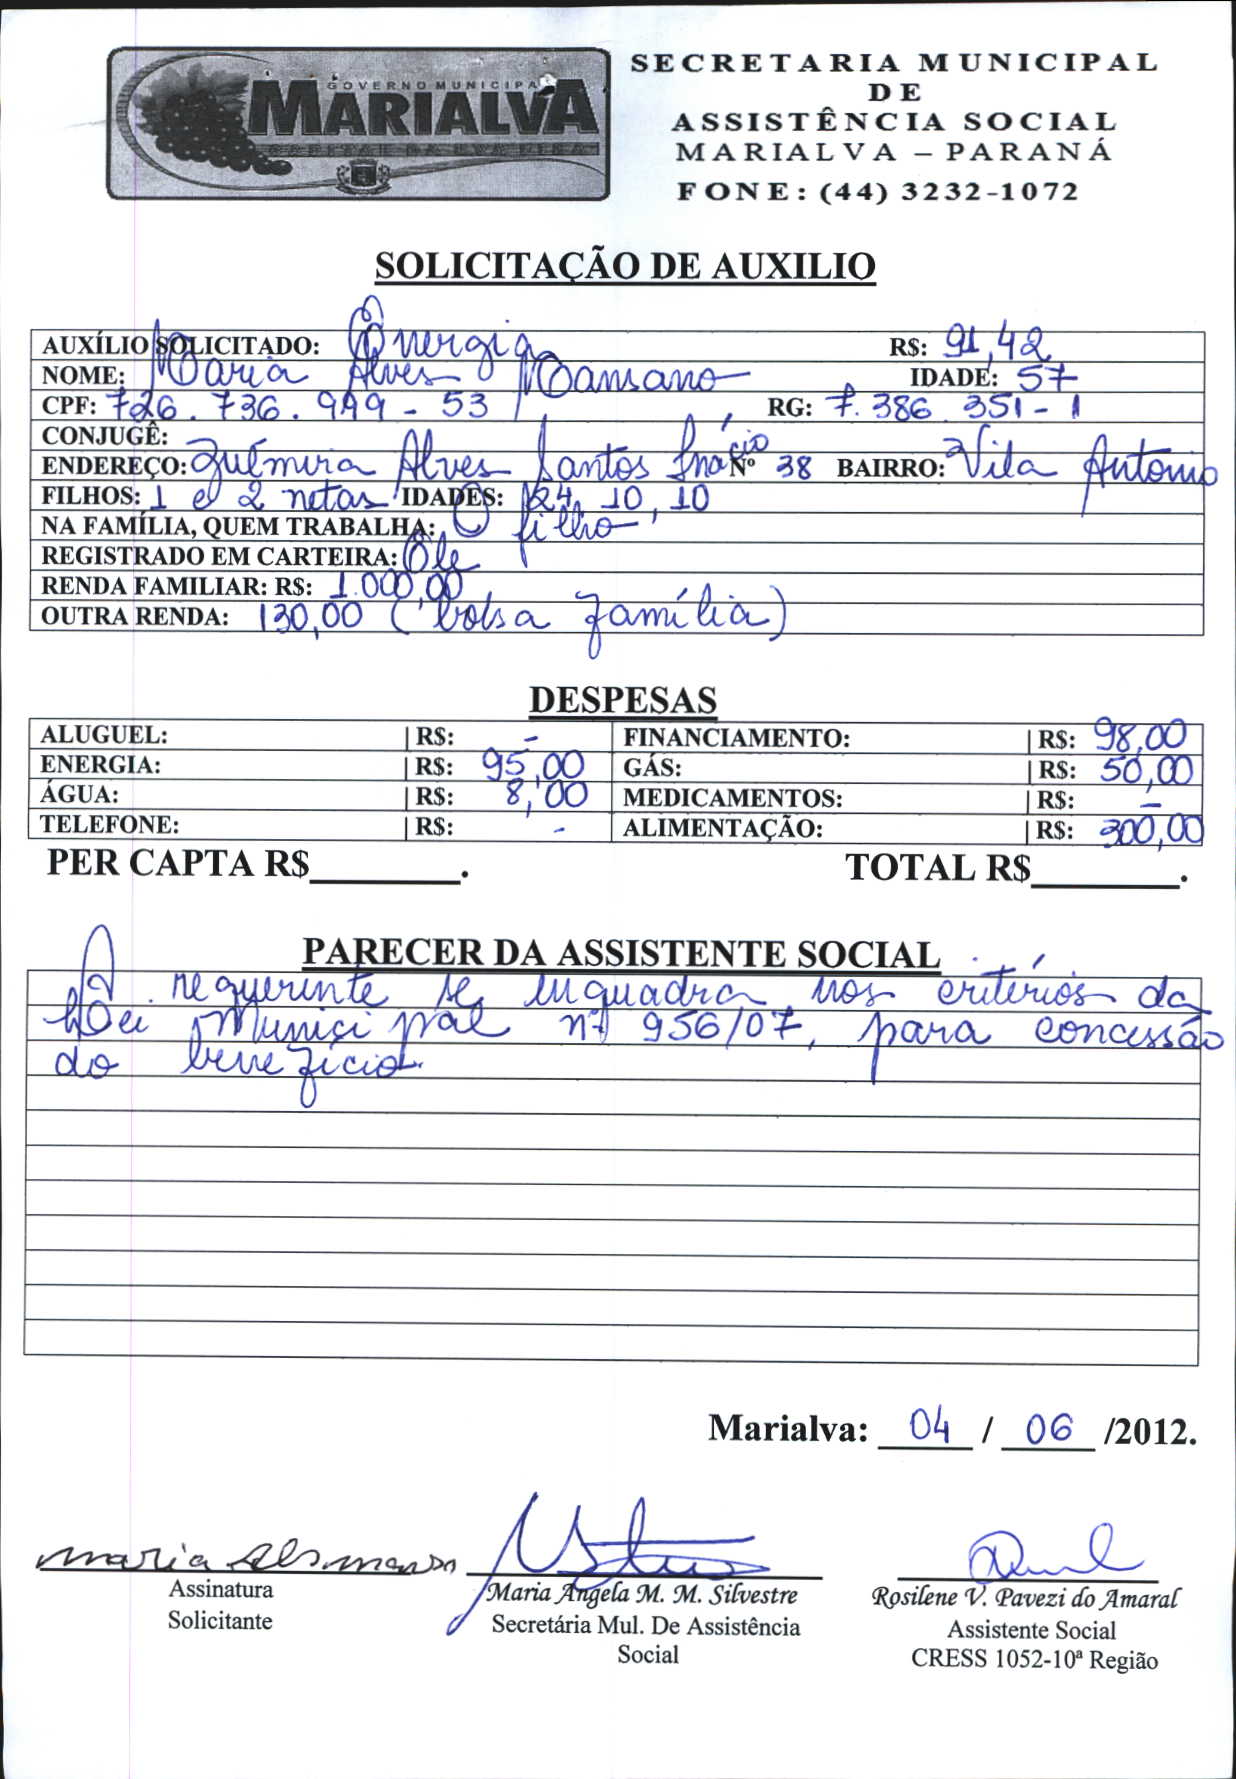 GOVERNO MUNICIPAL
MARIALVA
CAPITAL DA UVA FINA
SECRETARIA MUNICIPAL
DE
ASSISTÊNCIA SOCIAL
MARIALVA – PARANÁ
FONE: (44) 3232-1072
SOLICITAÇÃO DE AUXILIO
AUXÍLIO SOLICITADO: Energia R$: 91,42
NOME: Maria Alves Mansano IDADE: 57
CPF: 726.736.949-53 RG: 7.386.351-1
CONJUGÊ:
ENDEREÇO: Zulmira Alves Santos Inácio Nº 38 BAIRRO: Vila Antonio
FILHOS: 1 e 2 netas IDADES: 24, 10, 10
NA FAMÍLIA, QUEM TRABALHA: O filho
REGISTRADO EM CARTEIRA: Ele
RENDA FAMILIAR: R$: 1.000,00
OUTRA RENDA: 130,00 (bolsa família)
DESPESAS
ALUGUEL: | R$: - FINANCIAMENTO: | R$: 98,00
ENERGIA: | R$: 95,00 GÁS: | R$: 50,00
ÁGUA: | R$: 8,00 MEDICAMENTOS: | R$: -
TELEFONE: | R$: - ALIMENTAÇÃO: | R$: 300,00
PER CAPTA R$________. TOTAL R$________.
PARECER DA ASSISTENTE SOCIAL
A requerente se enquadra nos critérios da
Lei Municipal nº 956/07, para concessão
do benefício.
Marialva: 04 / 06 /2012.
Assinatura
Solicitante
Maria Angela M. M. Silvestre
Secretária Mul. De Assistência
Social
Rosilene V. Pavezi do Amaral
Assistente Social
CRESS 1052-10ª Região